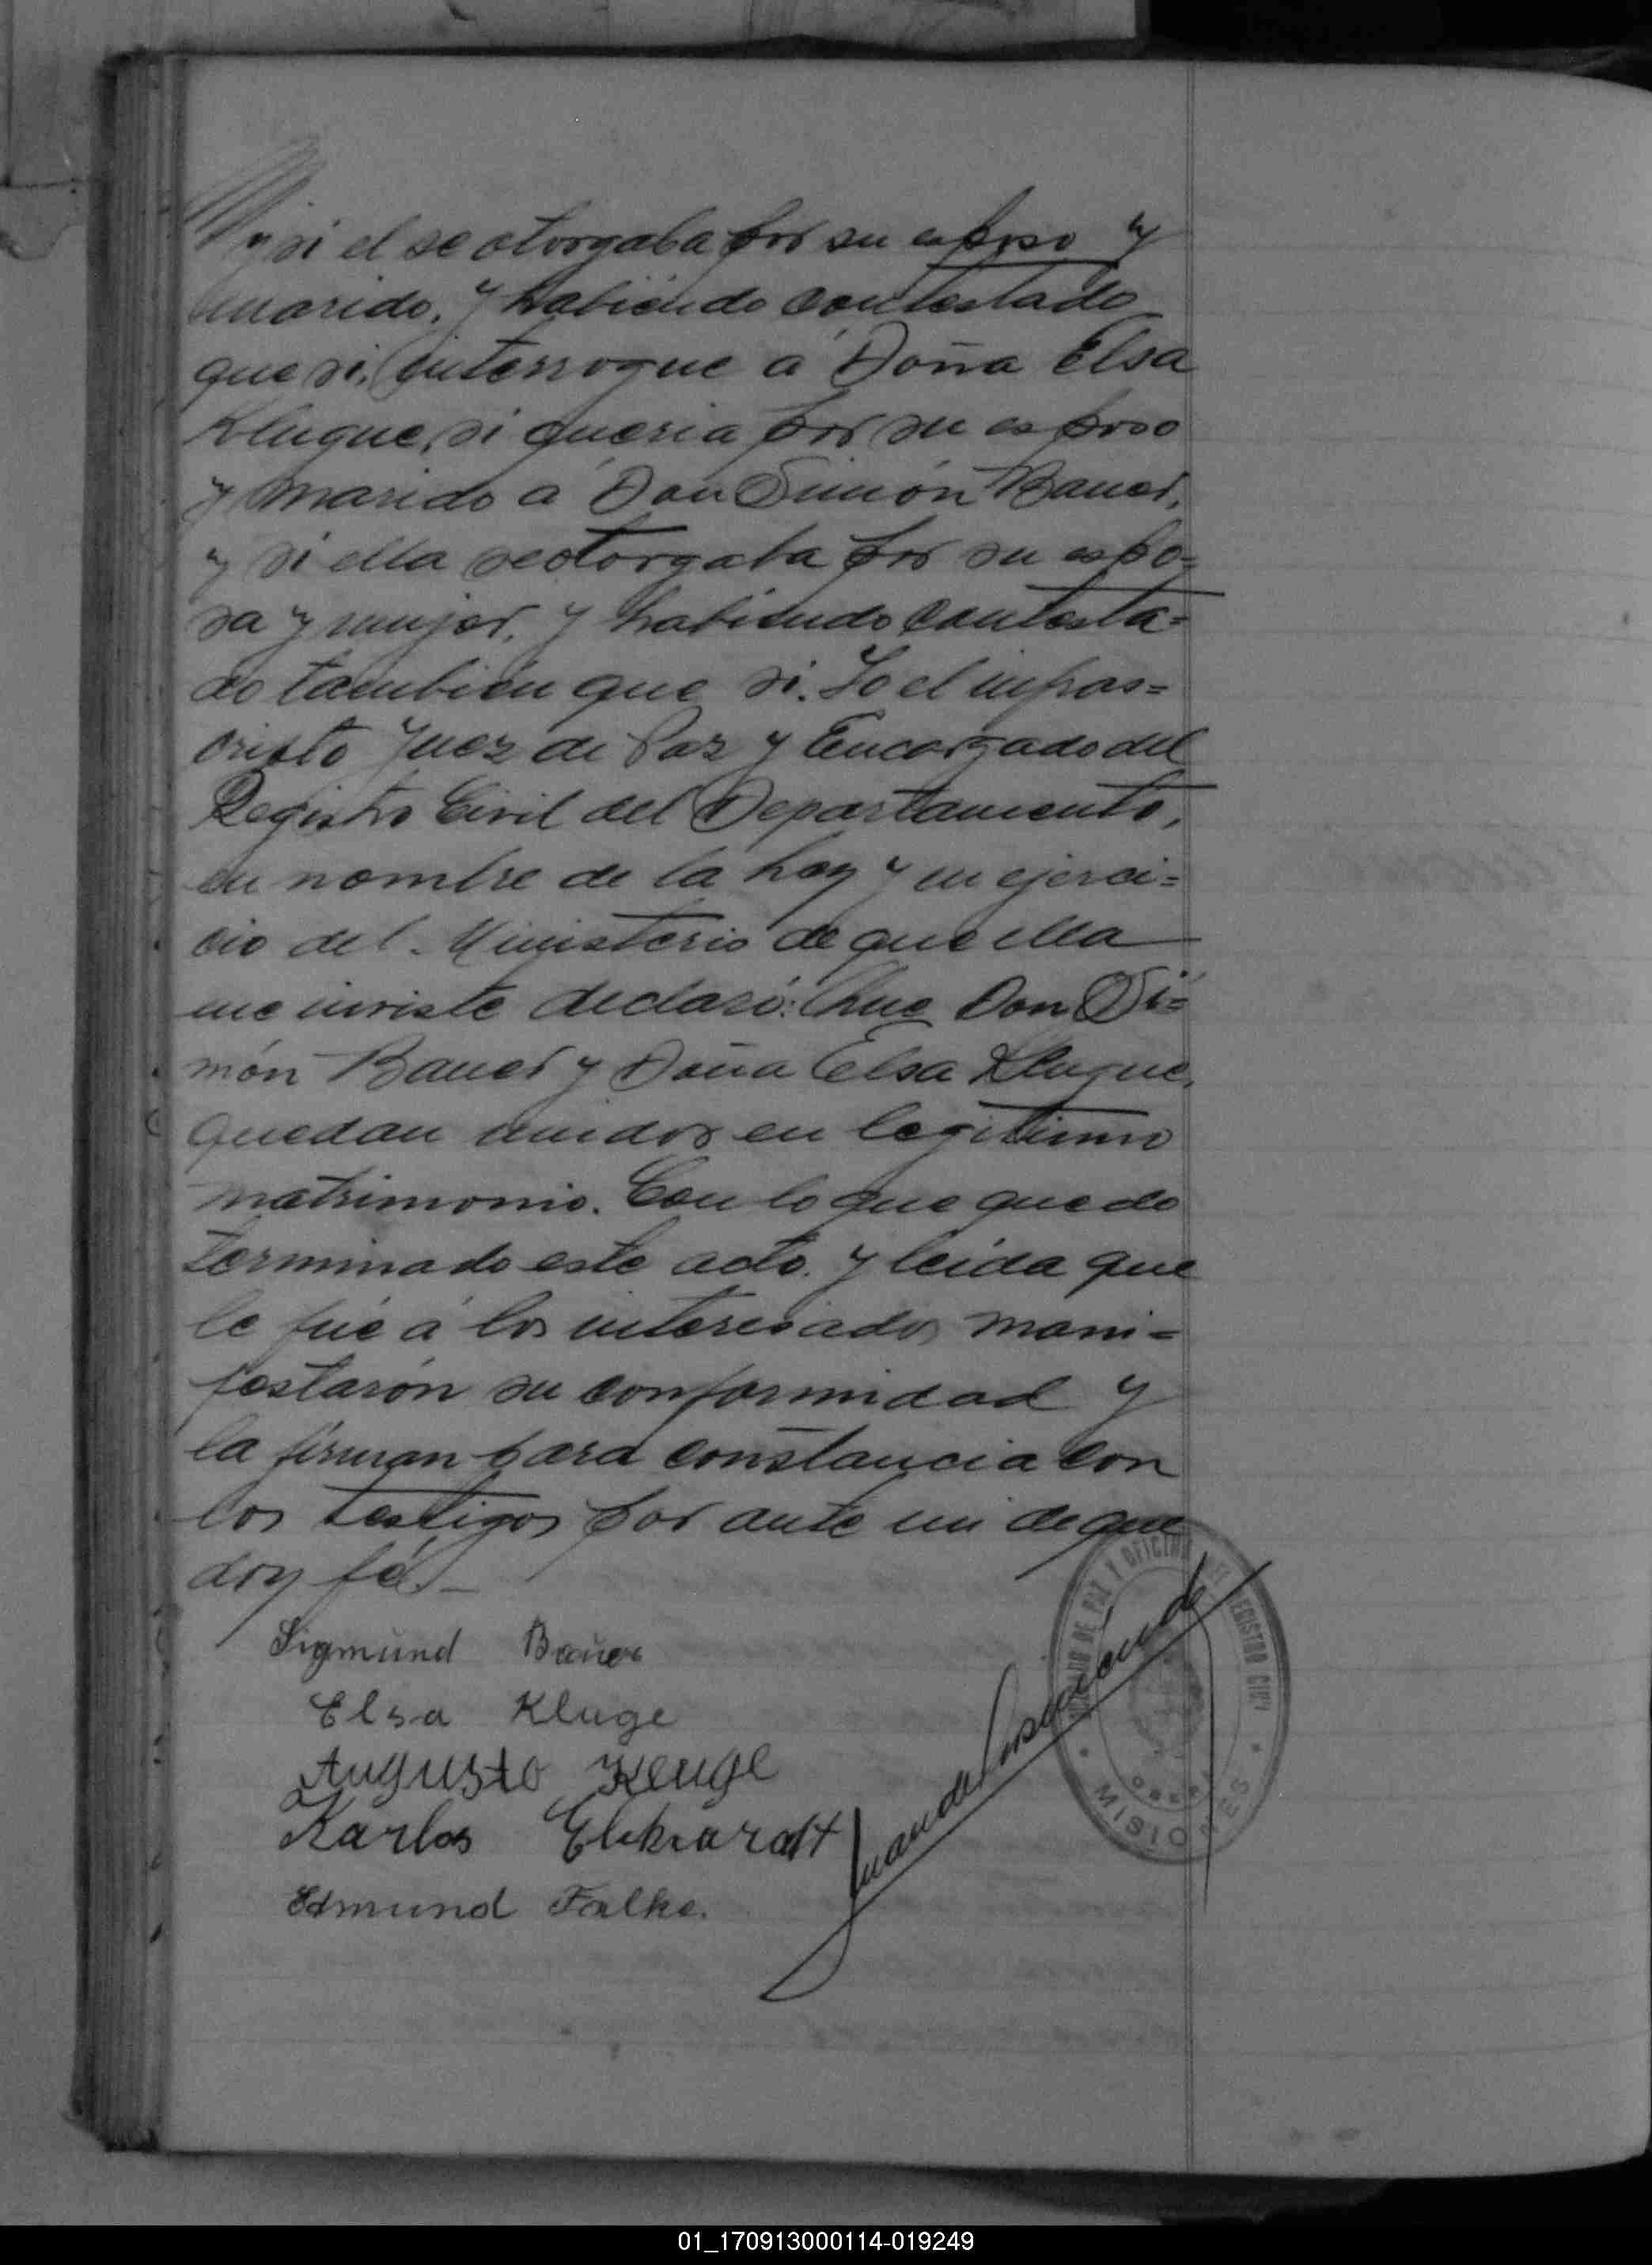 y si el se otorgaba por su esposo y
marido, y habiendo contestado
que si, interrogue a Doña Elsa
Klugue, si queria por su esposo
y marido á Don Simón Bauer,
y si ella se otorgaba por su espo=
sa y mujer, y habiendo contesta=
do tambien que si. Yo el infras=
cristo Juez de Paz y Encargado del
Registro Civil del Departamento,
en nombre de la Ley y en ejerci=
cio del Ministerio de que ella
me inviste declaró: Que Don Si=
món Bauer y Doña Elsa Klugue,
quedan unidos en legitimo
matrimonio. Con lo que quedo
terminado este acto. y leida que
le fué á los interesados mani=
festarón su conformidad y
la firman para constancia con
los testigos por ante mi de que
doy fé._
Sigmund Bauer
Elsa Kluge
Augusto
Karlos
Edmund Falke.
Juan de
DE PAZ Y OFICINA DEL REGISTRO CIVIL
MISIONES
01_170913000114-019249